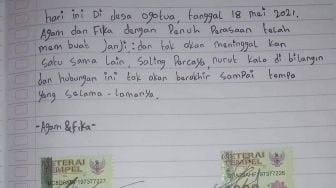 hari ini Di desa ogotua, tanggal 18 mei 2021.
Agam dan Fika dengan Penuh Perasaan telah
mem buat Janji: dan tak akan meninggal kan
satu sama lain, saling Percaya, nurut kalo di bilangin
dan hubungan ini tak akan berakhir sampai tempo
yang selama - lamanya.
-Agam & Fika-
METERAI
TEMPEL
METERAI
TEMPEL